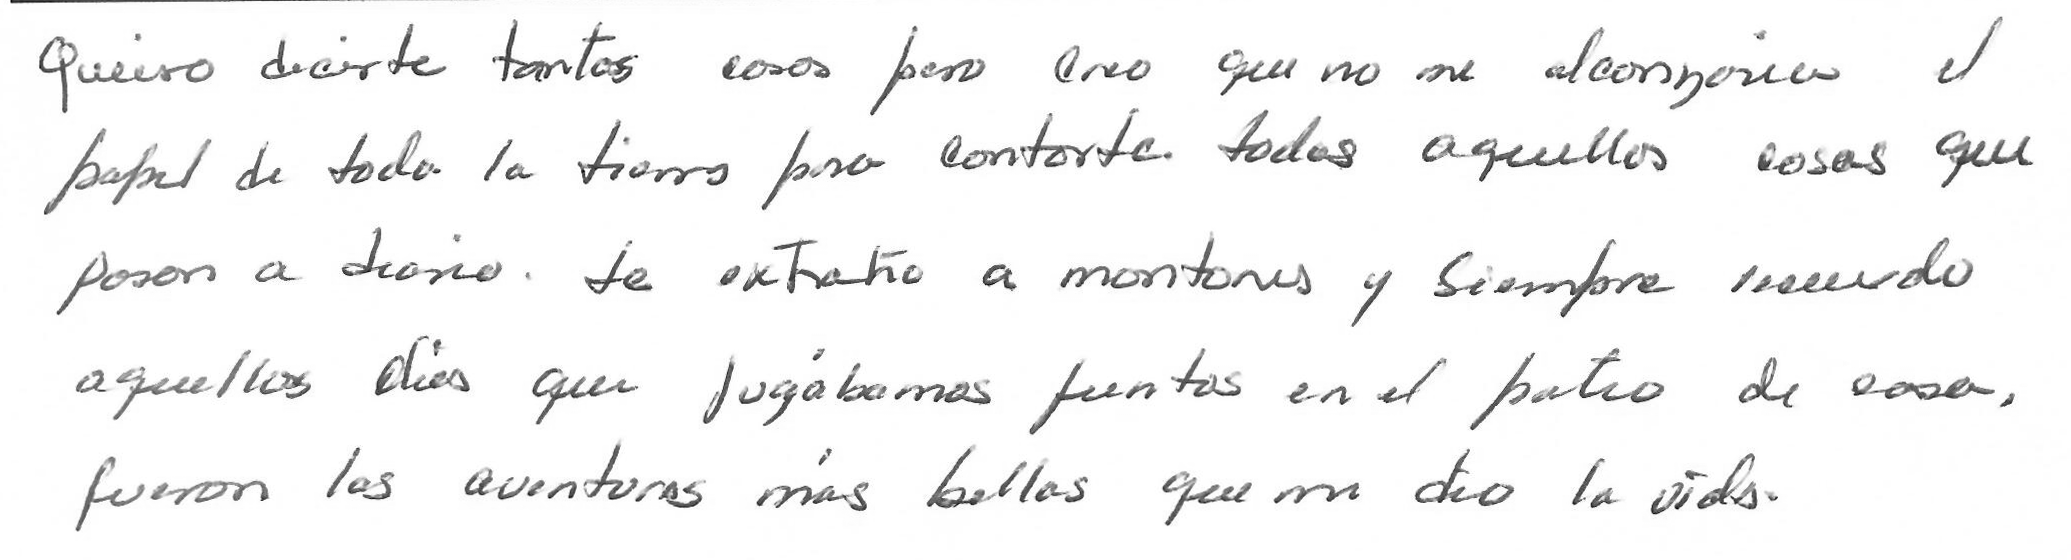 Quiero decirte tantas cosas pero creo que no me alcanzaría el
papel de toda la tierra para contarte todas aquellas cosas que
pasan a diario. te extraño a montones y siempre recuerdo
aquellos días que jugábamos juntos en el patio de casa,
fueron las aventuras más bellas que me dio la vida.